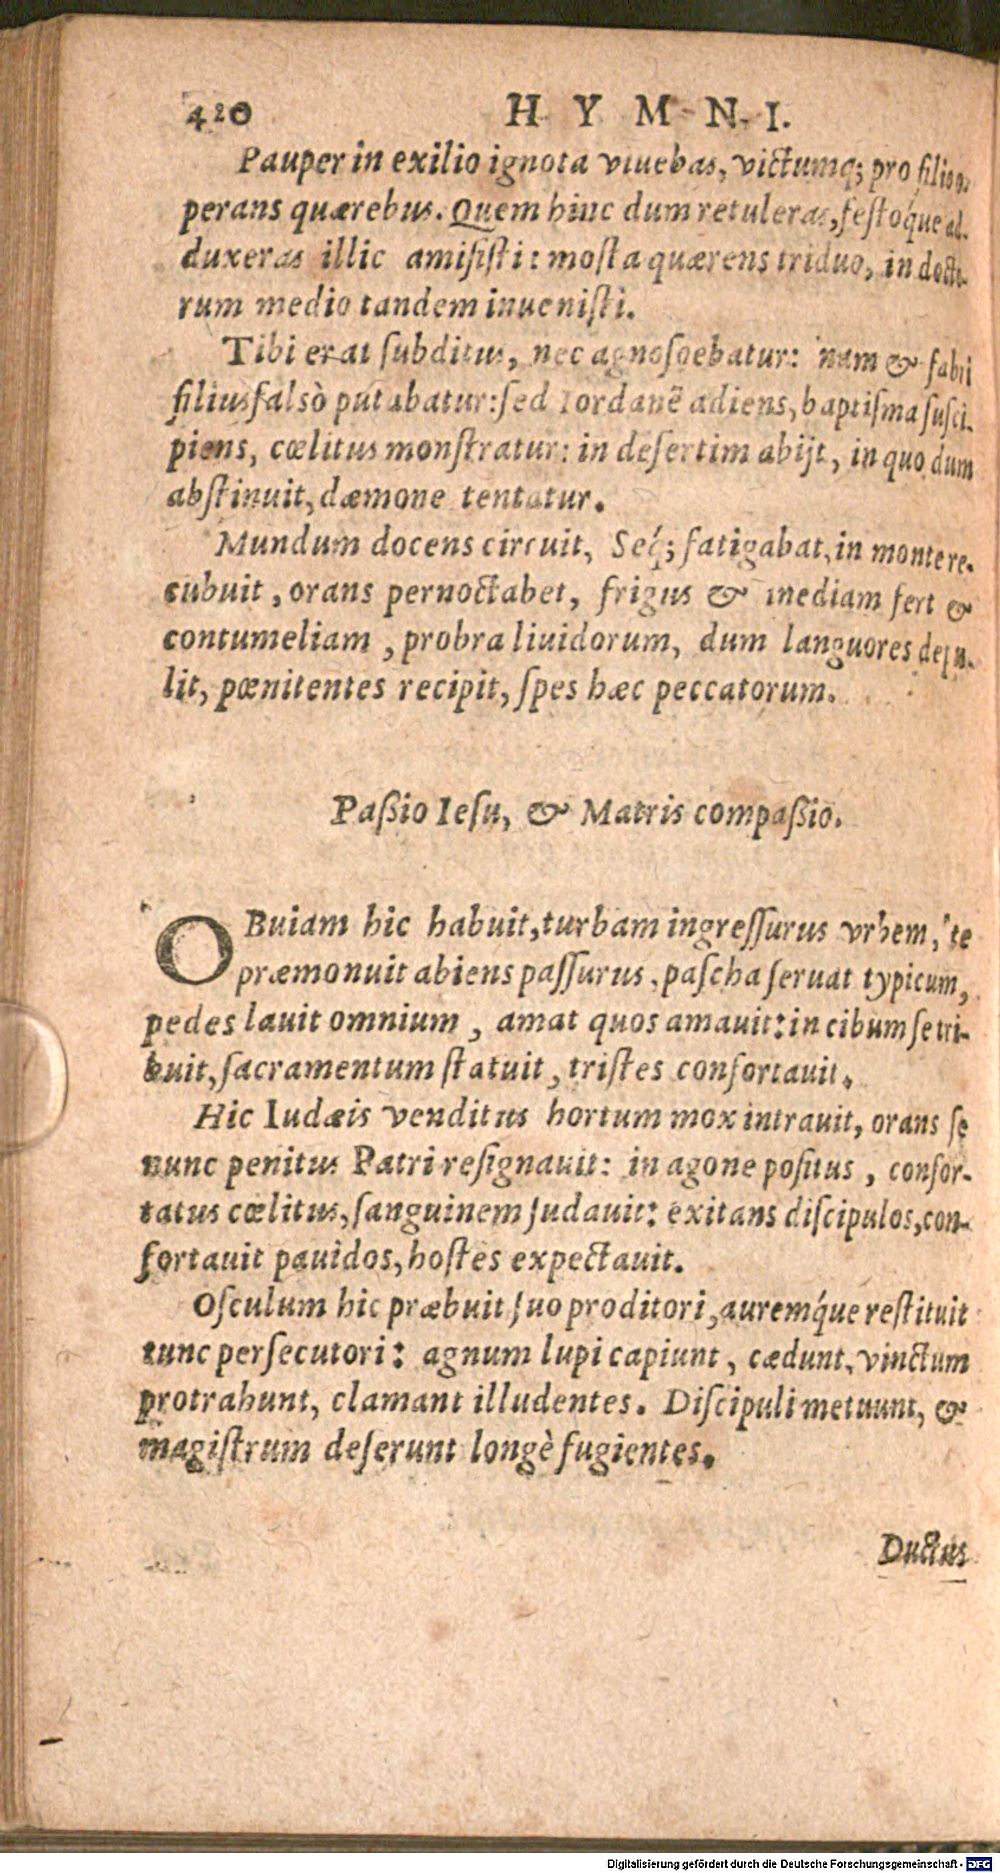 420 HYMNI.
Pauper in exilio ignota viuebas, victumq́; pro filio o-
perans quærebus. Quem hinc dum retuleras, festóque ad-
duxeras illic amisisti: mosta quærens triduo, in docto-
rum medio tandem inuenisti.
Tibi erat subditus, nec agnoscebatur: nam & fabri
filius falsò putabatur: sed Iordanẽ adiens, baptisma susci-
piens, cœlitus monstratur: in desertim abijt, in quo dum
abstinuit, dæmone tentatur.
Mundum docens circuit, Seq́; fatigabat, in monte re-
cubuit, orans pernoctabet, frigus & inediam fert &
contumeliam, probra liuidorum, dum languores depu-
lit, pœnitentes recipit, spes hæc peccatorum.
Paßio Iesu, & Matris compaßio.
OBuiam hic habuit, turbam ingressurus vrbem, te
præmonuit abiens passurus, pascha seruat typicum,
pedes lauit omnium, amat quos amauit: in cibum se tri-
buit, sacramentum statuit, tristes confortauit.
Hic Iudæis venditus hortum mox intrauit, orans se
nunc penitus Patri resignauit: in agone positus, confor-
tatus cœlitus, sanguinem sudauit: exitans discipulos, con-
fortauit pauidos, hostes expectauit.
Osculum hic præbuit suo proditori, auremq́ue restituit
tunc persecutori: agnum lupi capiunt, cædunt, vinctum
protrahunt, clamant illudentes. Discipuli metuunt, &
magistrum deserunt longè fugientes.
Ductus
Digitalisierung gefördert durch die Deutsche Forschungsgemeinschaft - DFG